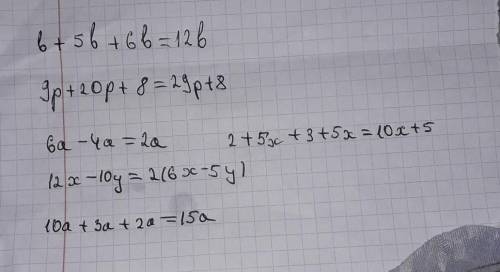 b + 5b + 6b = 12b
9p + 20p + 8 = 29p + 8
6a - 4a = 2a
2 + 5x + 3 + 5x = 10x + 5
12x - 10y = 2(6x - 5y)
10a + 3a + 2a = 15a